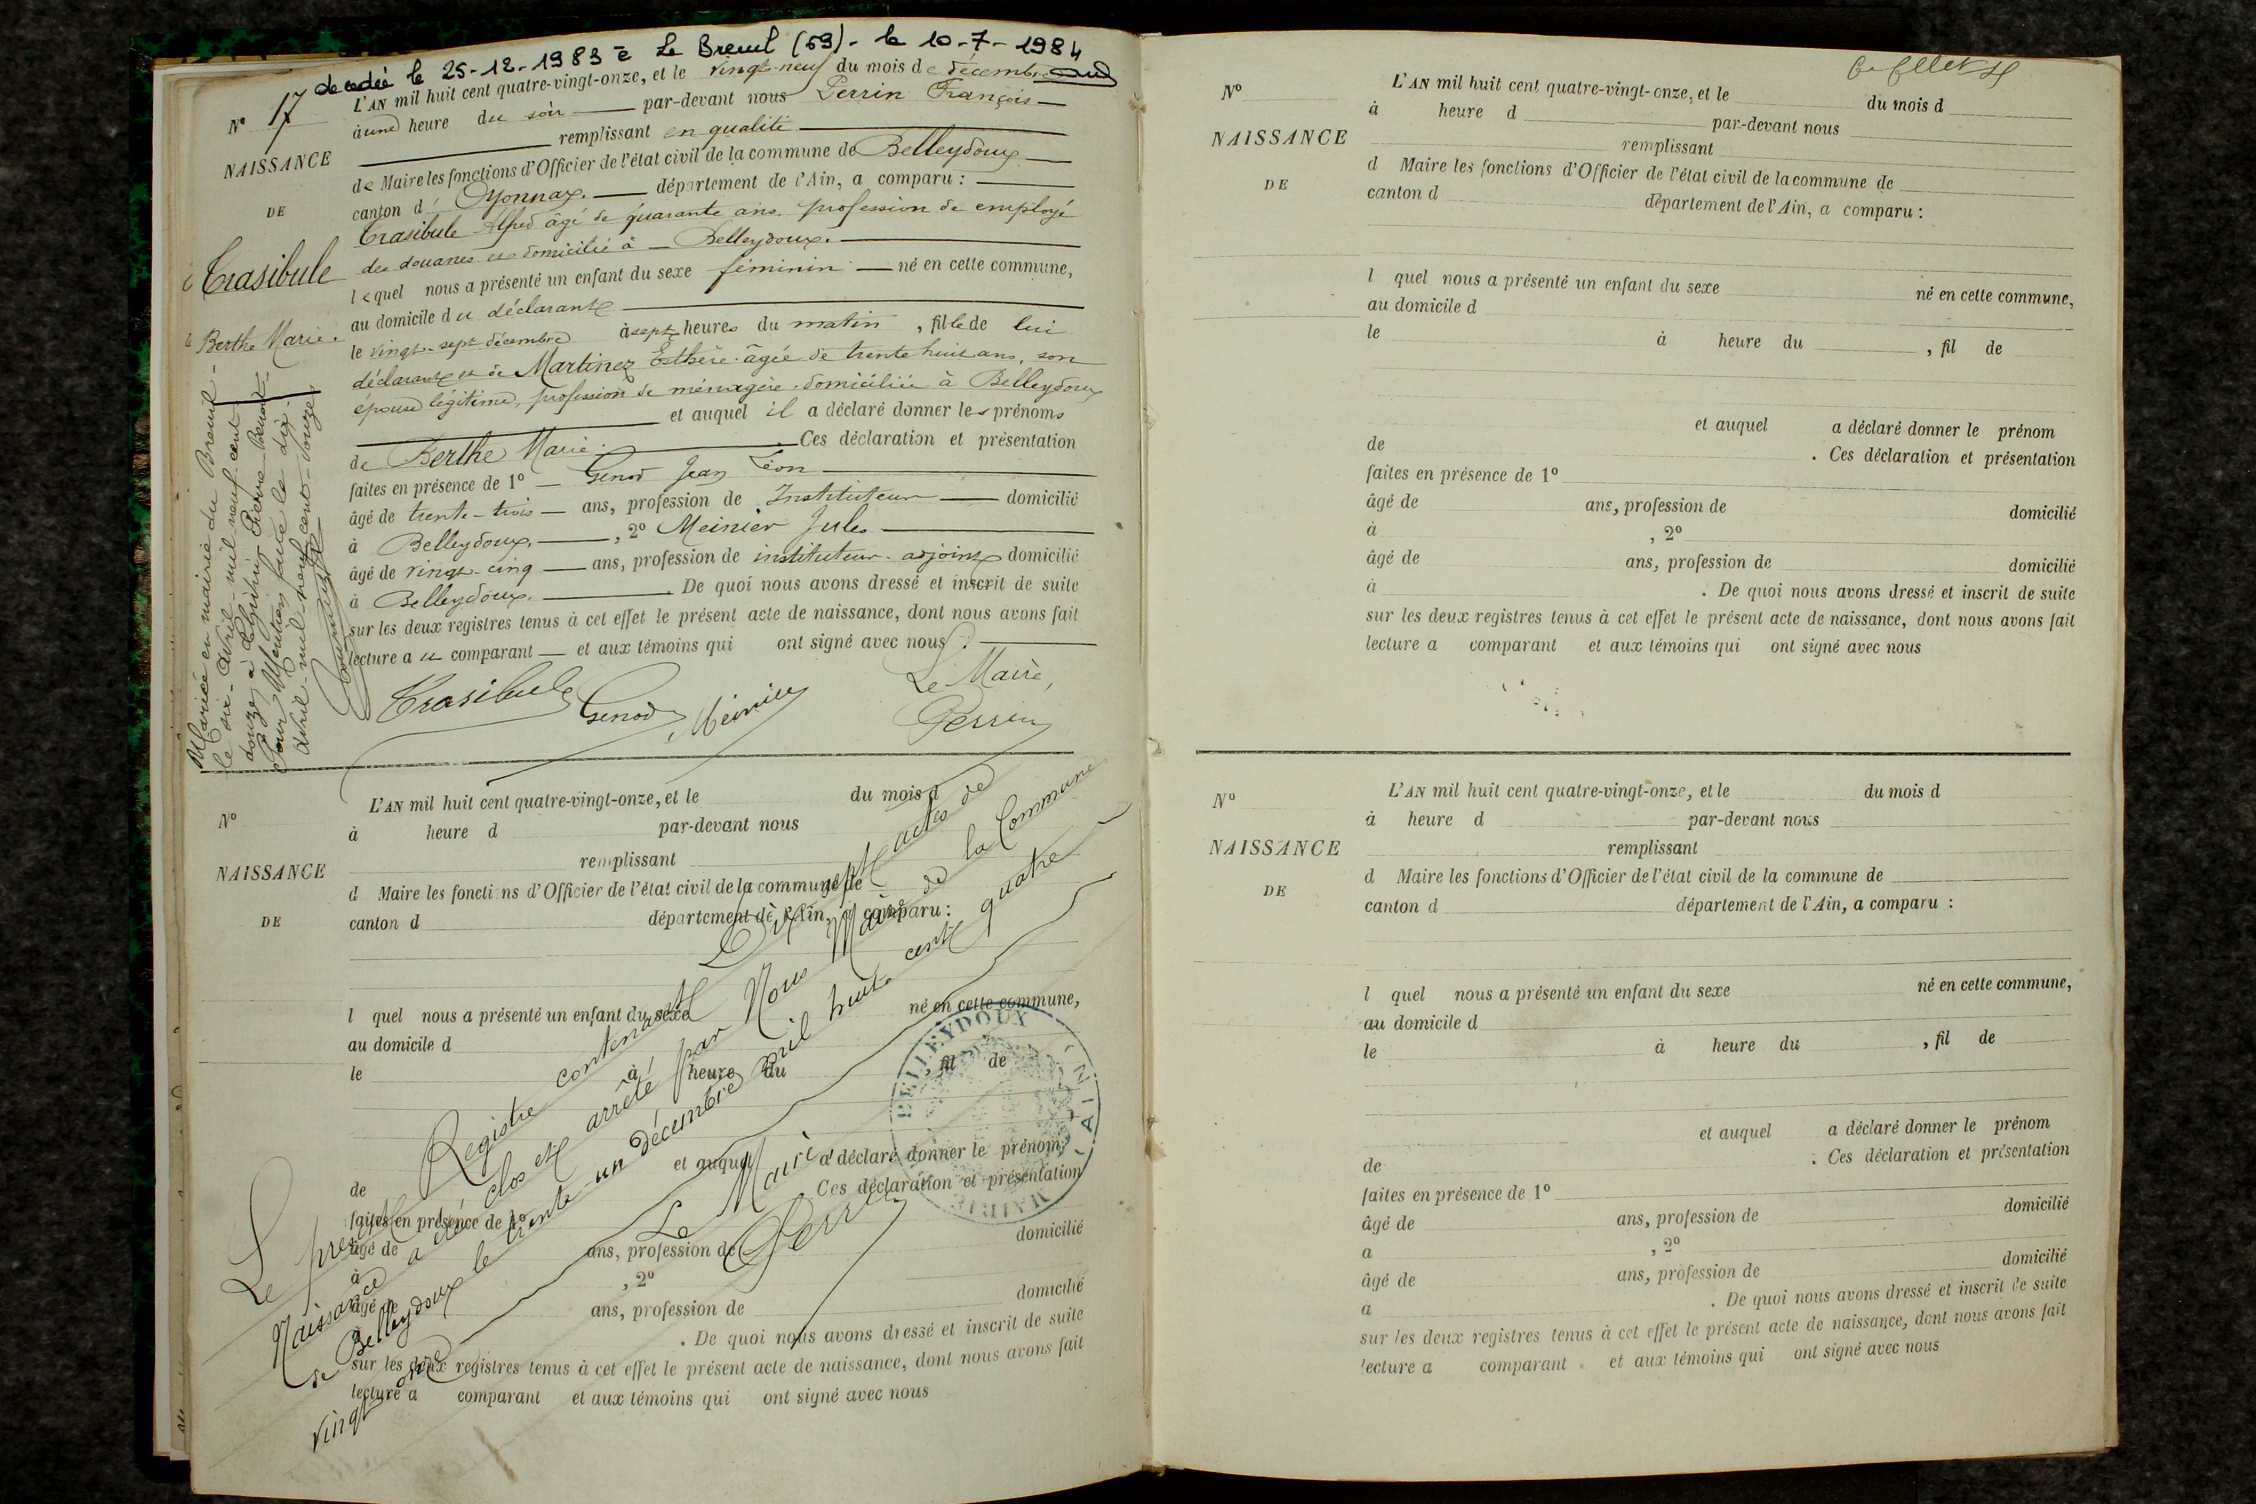 decedée le 25-12-1983 à Le Breuil (69) - le 10-7-1984
N° 17
NAISSANCE
DE
Trasibule
Berthe Marie.
L'AN mil huit cent quatre-vingt-onze, et le vingt-neuf du mois de décembre
à une heure du soir par-devant nous Perrin François
remplissant en qualité
de Maire les fonctions d'Officier de l'état civil de la commune de Belleydoux
canton d' Oyonnax. département de l'Ain, a comparu :
Trasibule Alfred âgé de quarante ans, profession de employé
des douanes domicilié à Belleydoux.
lequel nous a présenté un enfant du sexe féminin né en cette commune,
au domicile du déclarant
le vingt-sept décembre à sept heures du matin , fille de lui
déclarant et de Martinez Esthère âgée de trente huit ans, son
épouse légitime, profession de ménagère domiciliée à Belleydoux
et auquel il a déclaré donner les prénoms
de Berthe Marie. Ces déclaration et présentation
faites en présence de 1° Genod Jean Léon
âgé de trente-trois ans, profession de Instituteur domicilié
à Belleydoux, , 2° Meinier Jules
âgé de vingt-cinq ans, profession de instituteur-adjoint domicilié
à Belleydoux. De quoi nous avons dressé et inscrit de suite
sur les deux registres tenus à cet effet le présent acte de naissance, dont nous avons fait
lecture au comparant et aux témoins qui ont signé avec nous.
Le Maire,
Trasibule Genod Meinier Perrin
Mariée en mairie du Breuil
le six Avril mil neuf cent
douze à Pierre Benoit
Pour Mention faite le dix
Avril mil neuf cent douze
N°
NAISSANCE
DE
L'AN mil huit cent quatre-vingt-onze, et le du mois d
à heure d par-devant nous
remplissant
d Maire les fonctions d'Officier de l'état civil de la commune de
canton d département de l'Ain, a comparu :
l quel nous a présenté un enfant du sexe né en cette commune,
au domicile d
le à heure du , fil de
et auquel a déclaré donner le prénom
de Ces déclaration et présentation
faites en présence de 1°
âgé de ans, profession de domicilié
à , 2°
âgé de ans, profession de domicilié
. De quoi nous avons dressé et inscrit de suite
sur les deux registres tenus à cet effet le présent acte de naissance, dont nous avons fait
lecture a comparant et aux témoins qui ont signé avec nous
Le présent Registre contenant Dix sept actes de
Naissance a été clos et arrêté par Nous Maire de la Commune
de Belleydoux le trente-un décembre mil huit cent quatre
vingt onze
Le Maire
Perrin
BELLEYDOUX (AIN)
MAIRIE
N°
NAISSANCE
DE
L'AN mil huit cent quatre-vingt-onze, et le du mois d
à heure d par-devant nous
remplissant
d Maire les fonctions d'Officier de l'état civil de la commune de
canton d département de l'Ain, a comparu :
l quel nous a présenté un enfant du sexe né en cette commune,
au domicile d
le à heure du , fil de
et auquel a déclaré donner le prénom
de . Ces déclaration et présentation
faites en présence de 1°
âgé de ans, profession de domicilié
à , 2°
âgé de ans, profession de domicilié
à . De quoi nous avons dressé et inscrit de suite
sur les deux registres tenus à cet effet le présent acte de naissance, dont nous avons fait
lecture a comparant et aux témoins qui ont signé avec nous
N°
NAISSANCE
DE
L'AN mil huit cent quatre-vingt-onze, et le du mois d
à heure d par-devant nous
remplissant
d Maire les fonctions d'Officier de l'état civil de la commune de
canton d département de l'Ain, a comparu :
l quel nous a présenté un enfant du sexe né en cette commune,
au domicile d
le à heure du , fil de
et auquel a déclaré donner le prénom
de . Ces déclaration et présentation
faites en présence de 1°
âgé de ans, profession de domicilié
a , 2°
âgé de ans, profession de domicilié
a . De quoi nous avons dressé et inscrit de suite
sur les deux registres tenus à cet effet le présent acte de naissance, dont nous avons fait
lecture a comparant et aux témoins qui ont signé avec nous